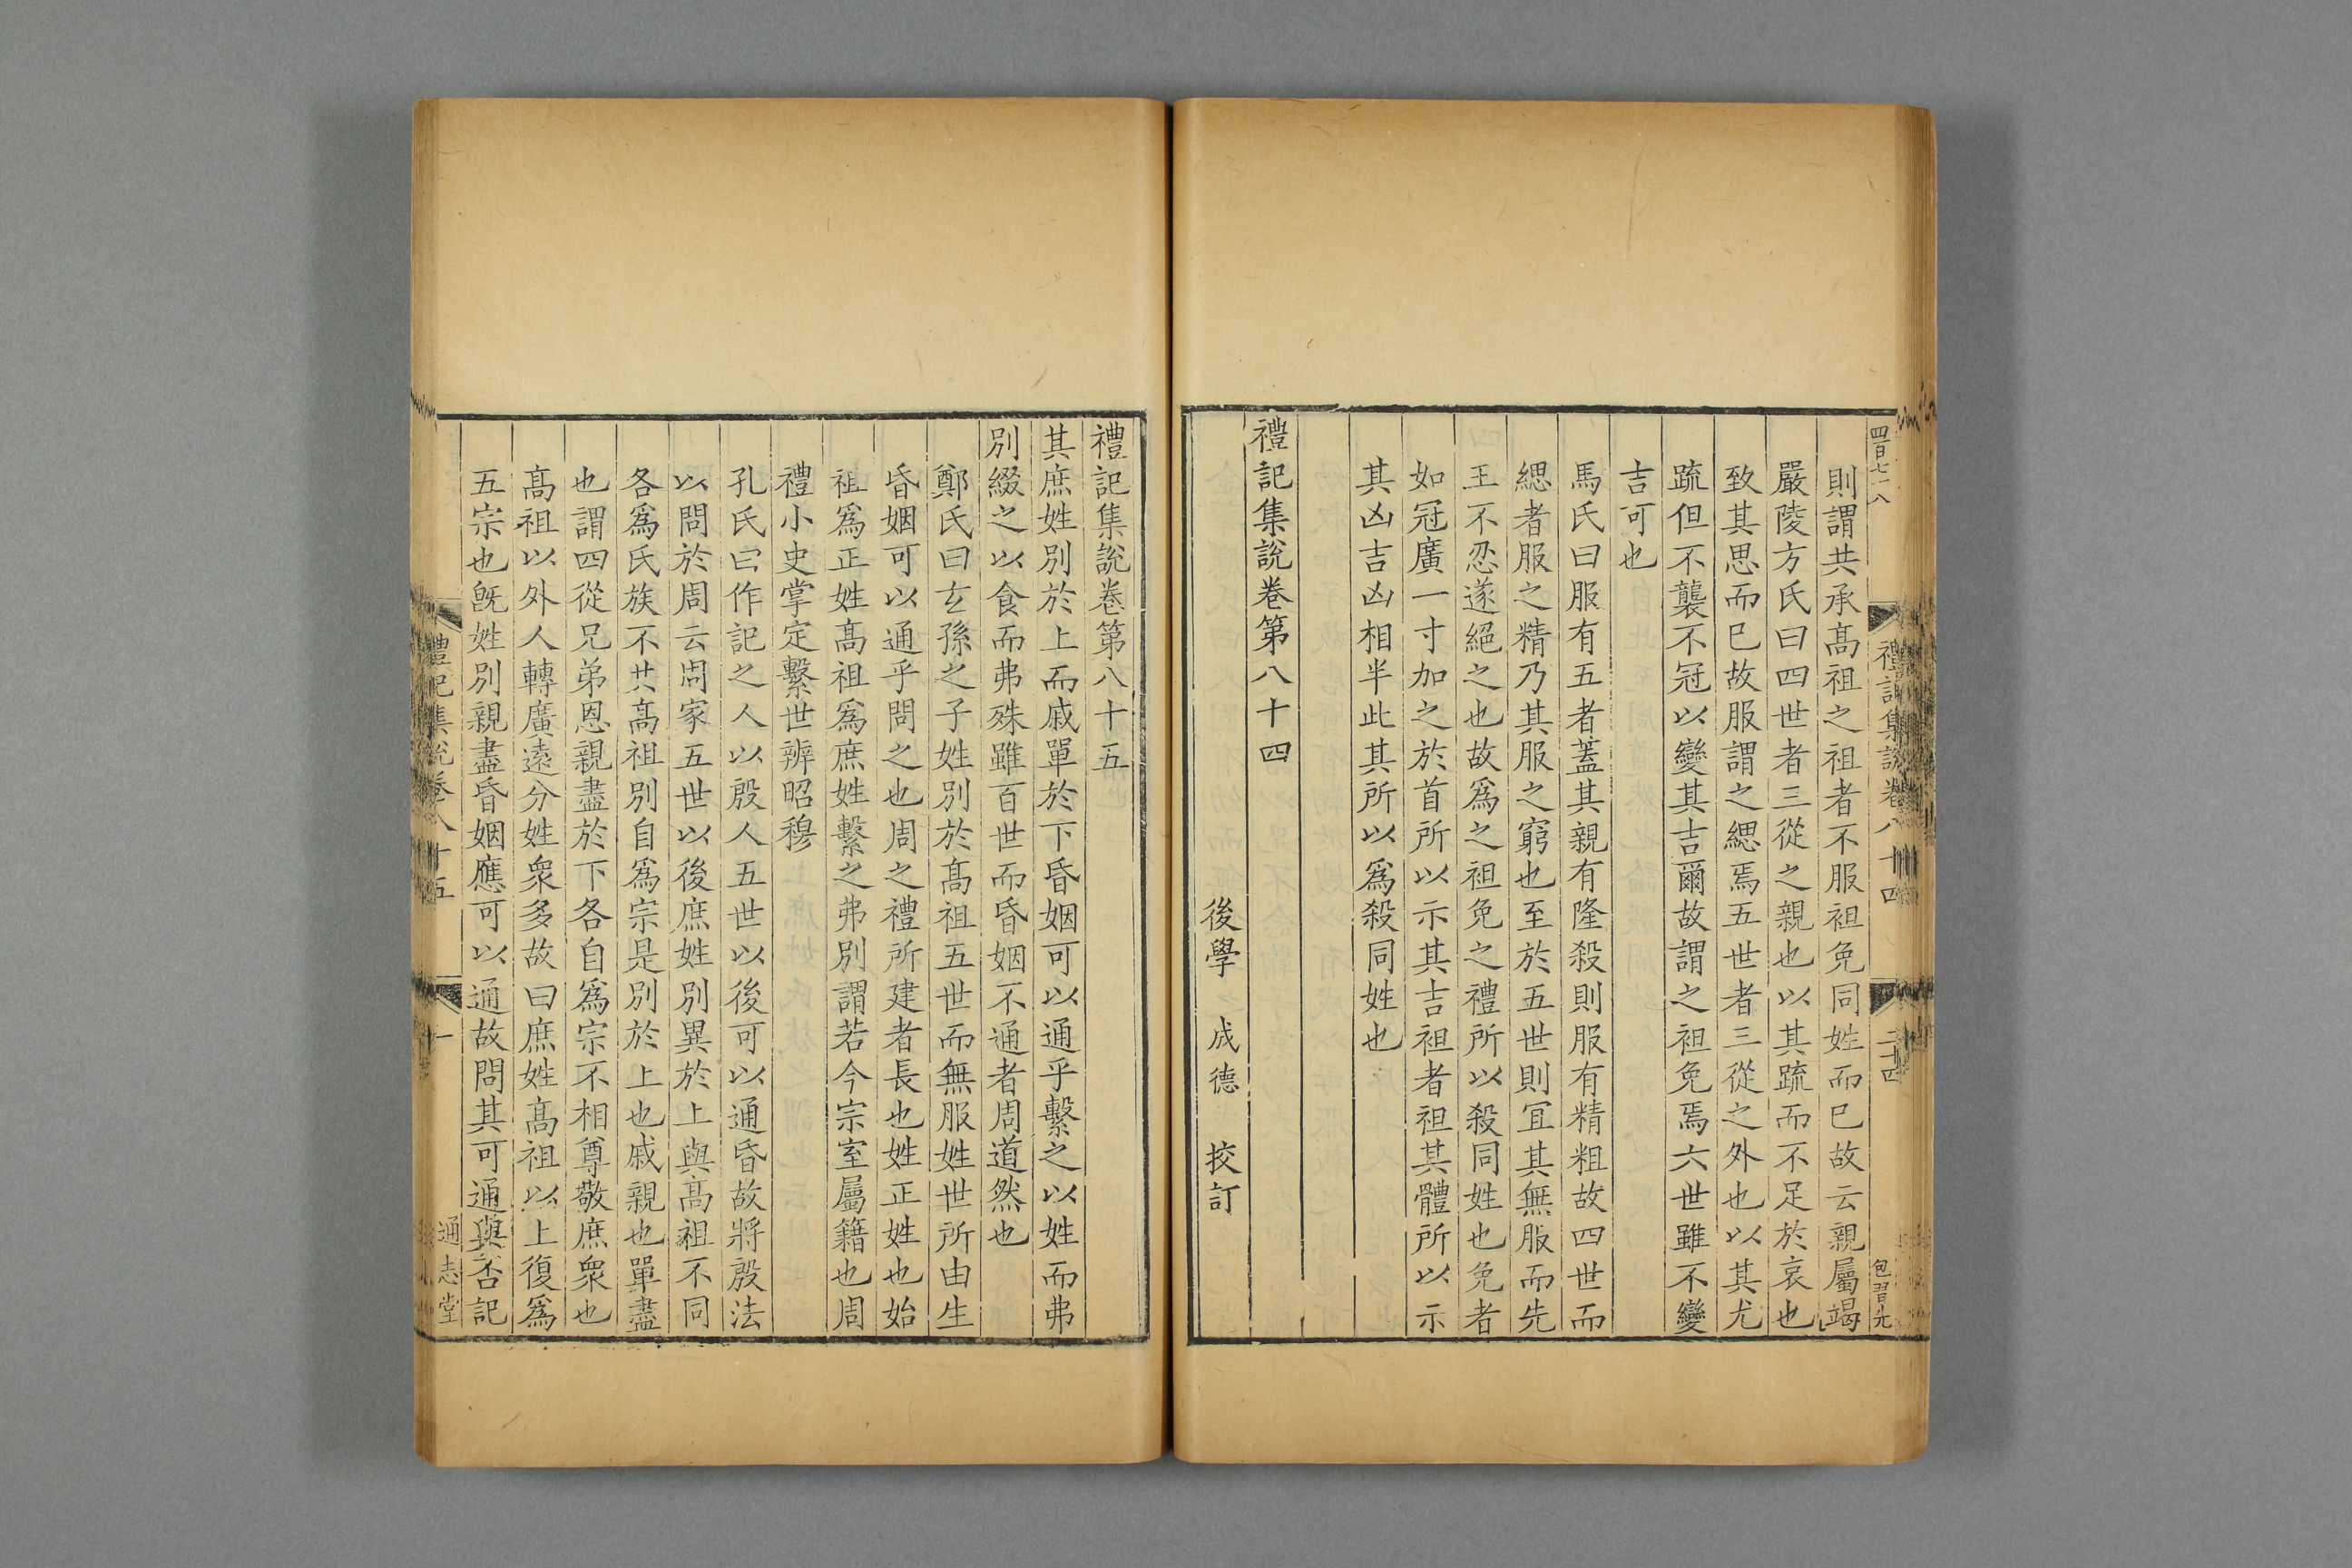 四百七十八
禮記集說卷八十四
二十四
包習先
則謂共承髙祖之祖者不服袒免同姓而已故云親屬竭
嚴陵方氏曰四世者三從之親也以其䟽而不足於哀也
致其思而已故服謂之緦焉五世者三從之外也以其尤
䟽但不襲不冠以變其吉爾故謂之袒免焉六世雖不變
吉可也
馬氏曰服有五者蓋其親有隆殺則服有精粗故四世而
緦者服之精乃其服之窮也至於五世則冝其無服而先
王不忍遂絕之也故爲之袒免之禮所以殺同姓也免者
如冠廣一寸加之於首所以示其吉袒者袒其體所以示
其凶吉凶相半此其所以爲殺同姓也
禮記集說卷第八十四
後學 成德 挍訂
禮記集說卷第八十五
其庶姓別於上而戚單於下昏姻可以通乎繫之以姓而弗
別綴之以食而弗殊雖百世而昏姻不通者周道然也
鄭氏曰玄孫之子姓別於髙祖五世而無服姓世所由生
昏姻可以通乎問之也周之禮所建者長也姓正姓也始
祖爲正姓髙祖爲庶姓繫之弗別謂若今宗室屬籍也周
禮小史掌定繫世辨昭穆
孔氏曰作記之人以殷人五世以後可以通昏故將殷法
以問於周云周家五世以後庶姓別異於上與髙祖不同
各爲氏族不共髙祖別自爲宗是別於上也戚親也單盡
也謂四從兄弟恩親盡於下各自爲宗不相尊敬庶衆也
髙祖以外人轉廣遠分姓衆多故曰庶姓髙祖以上復爲
五宗也旣姓別親盡昏姻應可以通故問其可通與否記
禮記集說卷八十五
一
通志堂